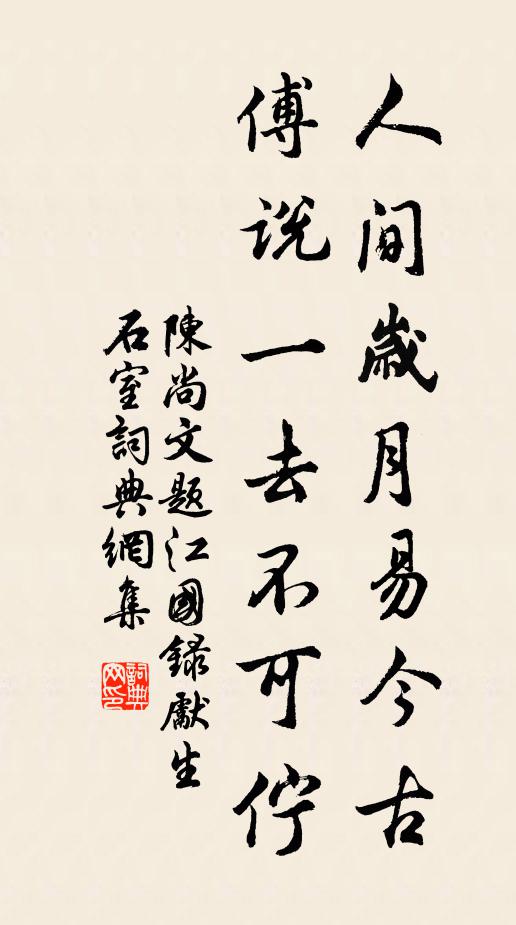 人間歲月易今古
傅説一去不可佇
陳尚文題江國錄獻生
石室詞典網集
詞典
网印